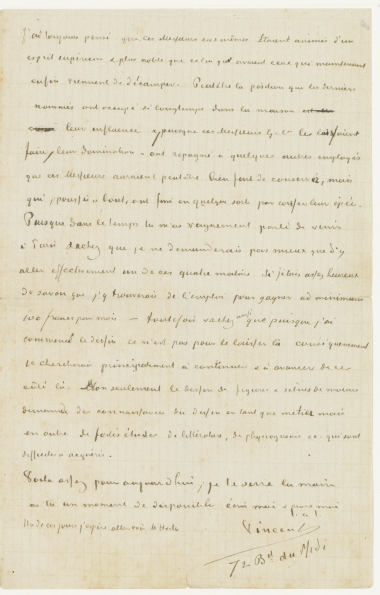 J'ai toujours pensé que ces Messieurs eux mêmes étaient animés d'un
esprit supérieur & plus noble que celui qu'avaient ceux qui maintenant
enfin viennent de décamper. Peut être la position que les derniers
nommés ont occupé si longtemps dans la maison
leur influence puisque ces Messieurs les laissaient
faire, leur domination – ont répugné a quelques autres employés
que ces Messieurs auraient peut être bien fait de conserver, mais
qui, poussés a bout, ont fini en quelque sorte par casser leur épée.
Puisque dans le temps tu m'as vaguement parlé de venir
à Paris sachez que je ne demanderais pas mieux que d'y
aller effectivement un de ces quatre matins si j'étais assez heureux
de savoir que j'y trouverais de l'emploi pour gagner au minimum
100 francs par mois – toutefois sachez aussi que puisque j'ai
commencé le dessin ce n'est pas pour le laisser là conséquemment
je chercherai principalement a continuer & à avancer de ce
côté là. Non seulement le dessin de figure & scènes de moeurs
demande des connaissances du dessin en tant que métier mais
en outre de fortes études de littérature, de physiognomie &c. qui sont
difficiles a acquérir.
Voila assez pour aujourd'hui, je te serre la main
as tu un moment de disponible écris moi &
Un de ces jours j'espère aller voir
Vincent
72 Bd du Midi